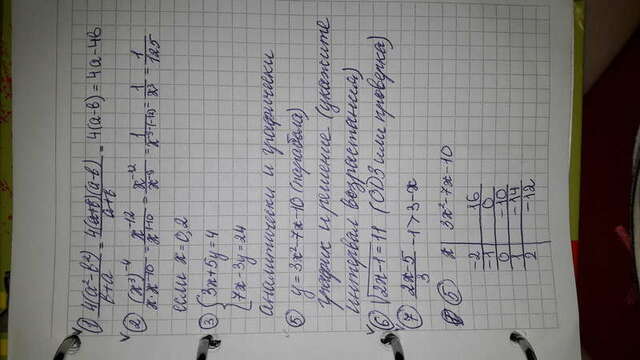 ① 4(a²-b²)/b+a = 4(a+b)(a-b)/a+b = 4(a-b) = 4a-4b
② (x³)⁻⁴/x·x⁻¹⁰ = x⁻¹²/x⁻⁹ = 1/x³ = 1/125
если x=0,2
③ {3x+5y=4
{7x-3y=24
аналитически и графически
⑤ y=3x²-7x-10 (парабола)
график и решение (укажите
интервал возрастания)
⑥ √2x-1=11 (ОДЗ или проверка)
⑦ 2x-5/3 -1>3x
⑤ x 3x²-7x-10
-2 16
-1 0
0 -10
1 -14
2 -12